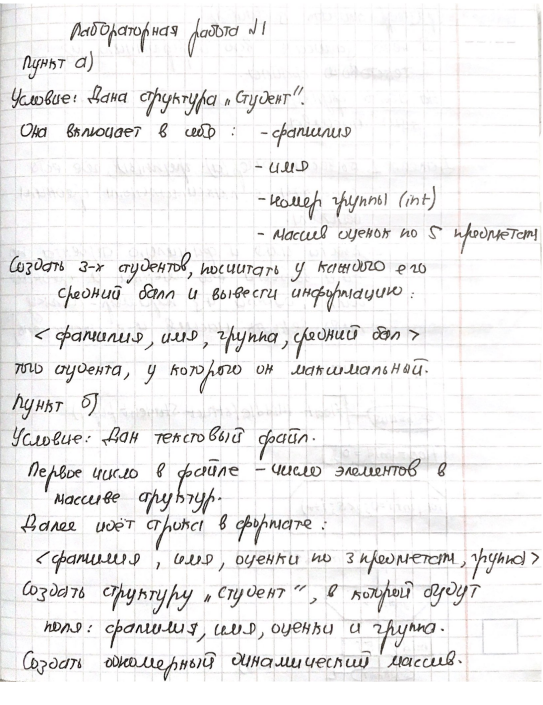 Лабораторная работа №1
Пункт а)
Условие: Дана структура „Студент".
Она включает в себя : - фамилия
- имя
- номер группы (int)
- массив оценок по 5 предметам
Создать 3-х студентов, посчитать у каждого его
средний балл и вывести информацию :
< фамилия, имя, группа, средний бал >
того студента, у которого он максимальный.
Пункт б)
Условие: Дан текстовый файл.
Первое число в файле - число элементов в
массиве структур.
Далее идёт строки в формате :
<фамилия , имя, оценки по 3 предметам, группа>
Создать структуру „Студент", в которой будут
поля: фамилия, имя, оценки и группа.
Создать одномерный динамический массив.